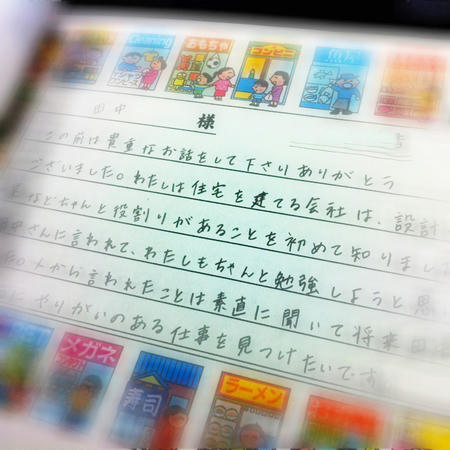 Cleaning おもちゃ コンビニ 魚屋
田中 様
この前は貴重なお話をして下さりありがとう
ございました。わたしは住宅を建てる会社は、設計
などちゃんと役割りがあることを初めて知りまし
さんに言われて、わたしもちゃんと勉強しようと思
人から言われたことは素直に聞いて将来
やりがいのある仕事を見つけたいです
メガネ 寿司 ラーメン